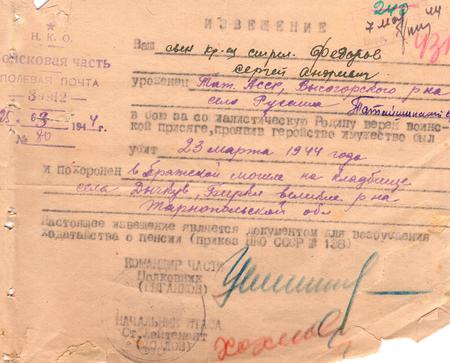 И З В Е Щ Е Н И Е
Н. К. О.
ВОЙСКОВАЯ ЧАСТЬ
ПОЛЕВАЯ ПОЧТА
1944 г.
№ 80
240
7 май
Ваш сын кр-ец стрел. Федоров
Сергей Андреевич
уроженец Тат. АССР, Высогорского р-на
село Русаша
в бою за социалистическую Родину верен воинс-
кой присяге, проявив геройство и мужество был
убит 23 марта 1944 года
и похоронен в братской могиле на кладбище
села Дычкув, Бирки великие р-на
Тарнопольской обл
Настоящее извещение является документом для возбуждения
ходатайства о пенсии (приказ НКО СССР № 138)
КОМАНДИР ЧАСТИ
Полковник
(ЦЫГАНКОВ)
НАЧАЛЬНИК ШТАБА
Ст. лейтенант